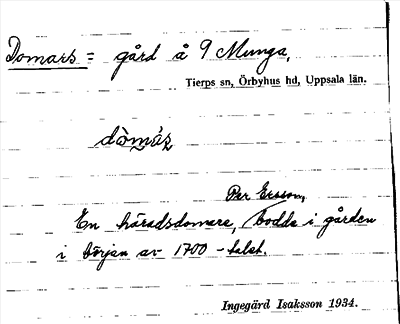 Domars = gård å 9 Munga,
Tierps sn, Örbyhus hd, Uppsala län.
dòmáz
Per Ersson,
En häradsdomare, bodde i gården
i början av 1700-talet.
Ingegärd Isaksson 1934.